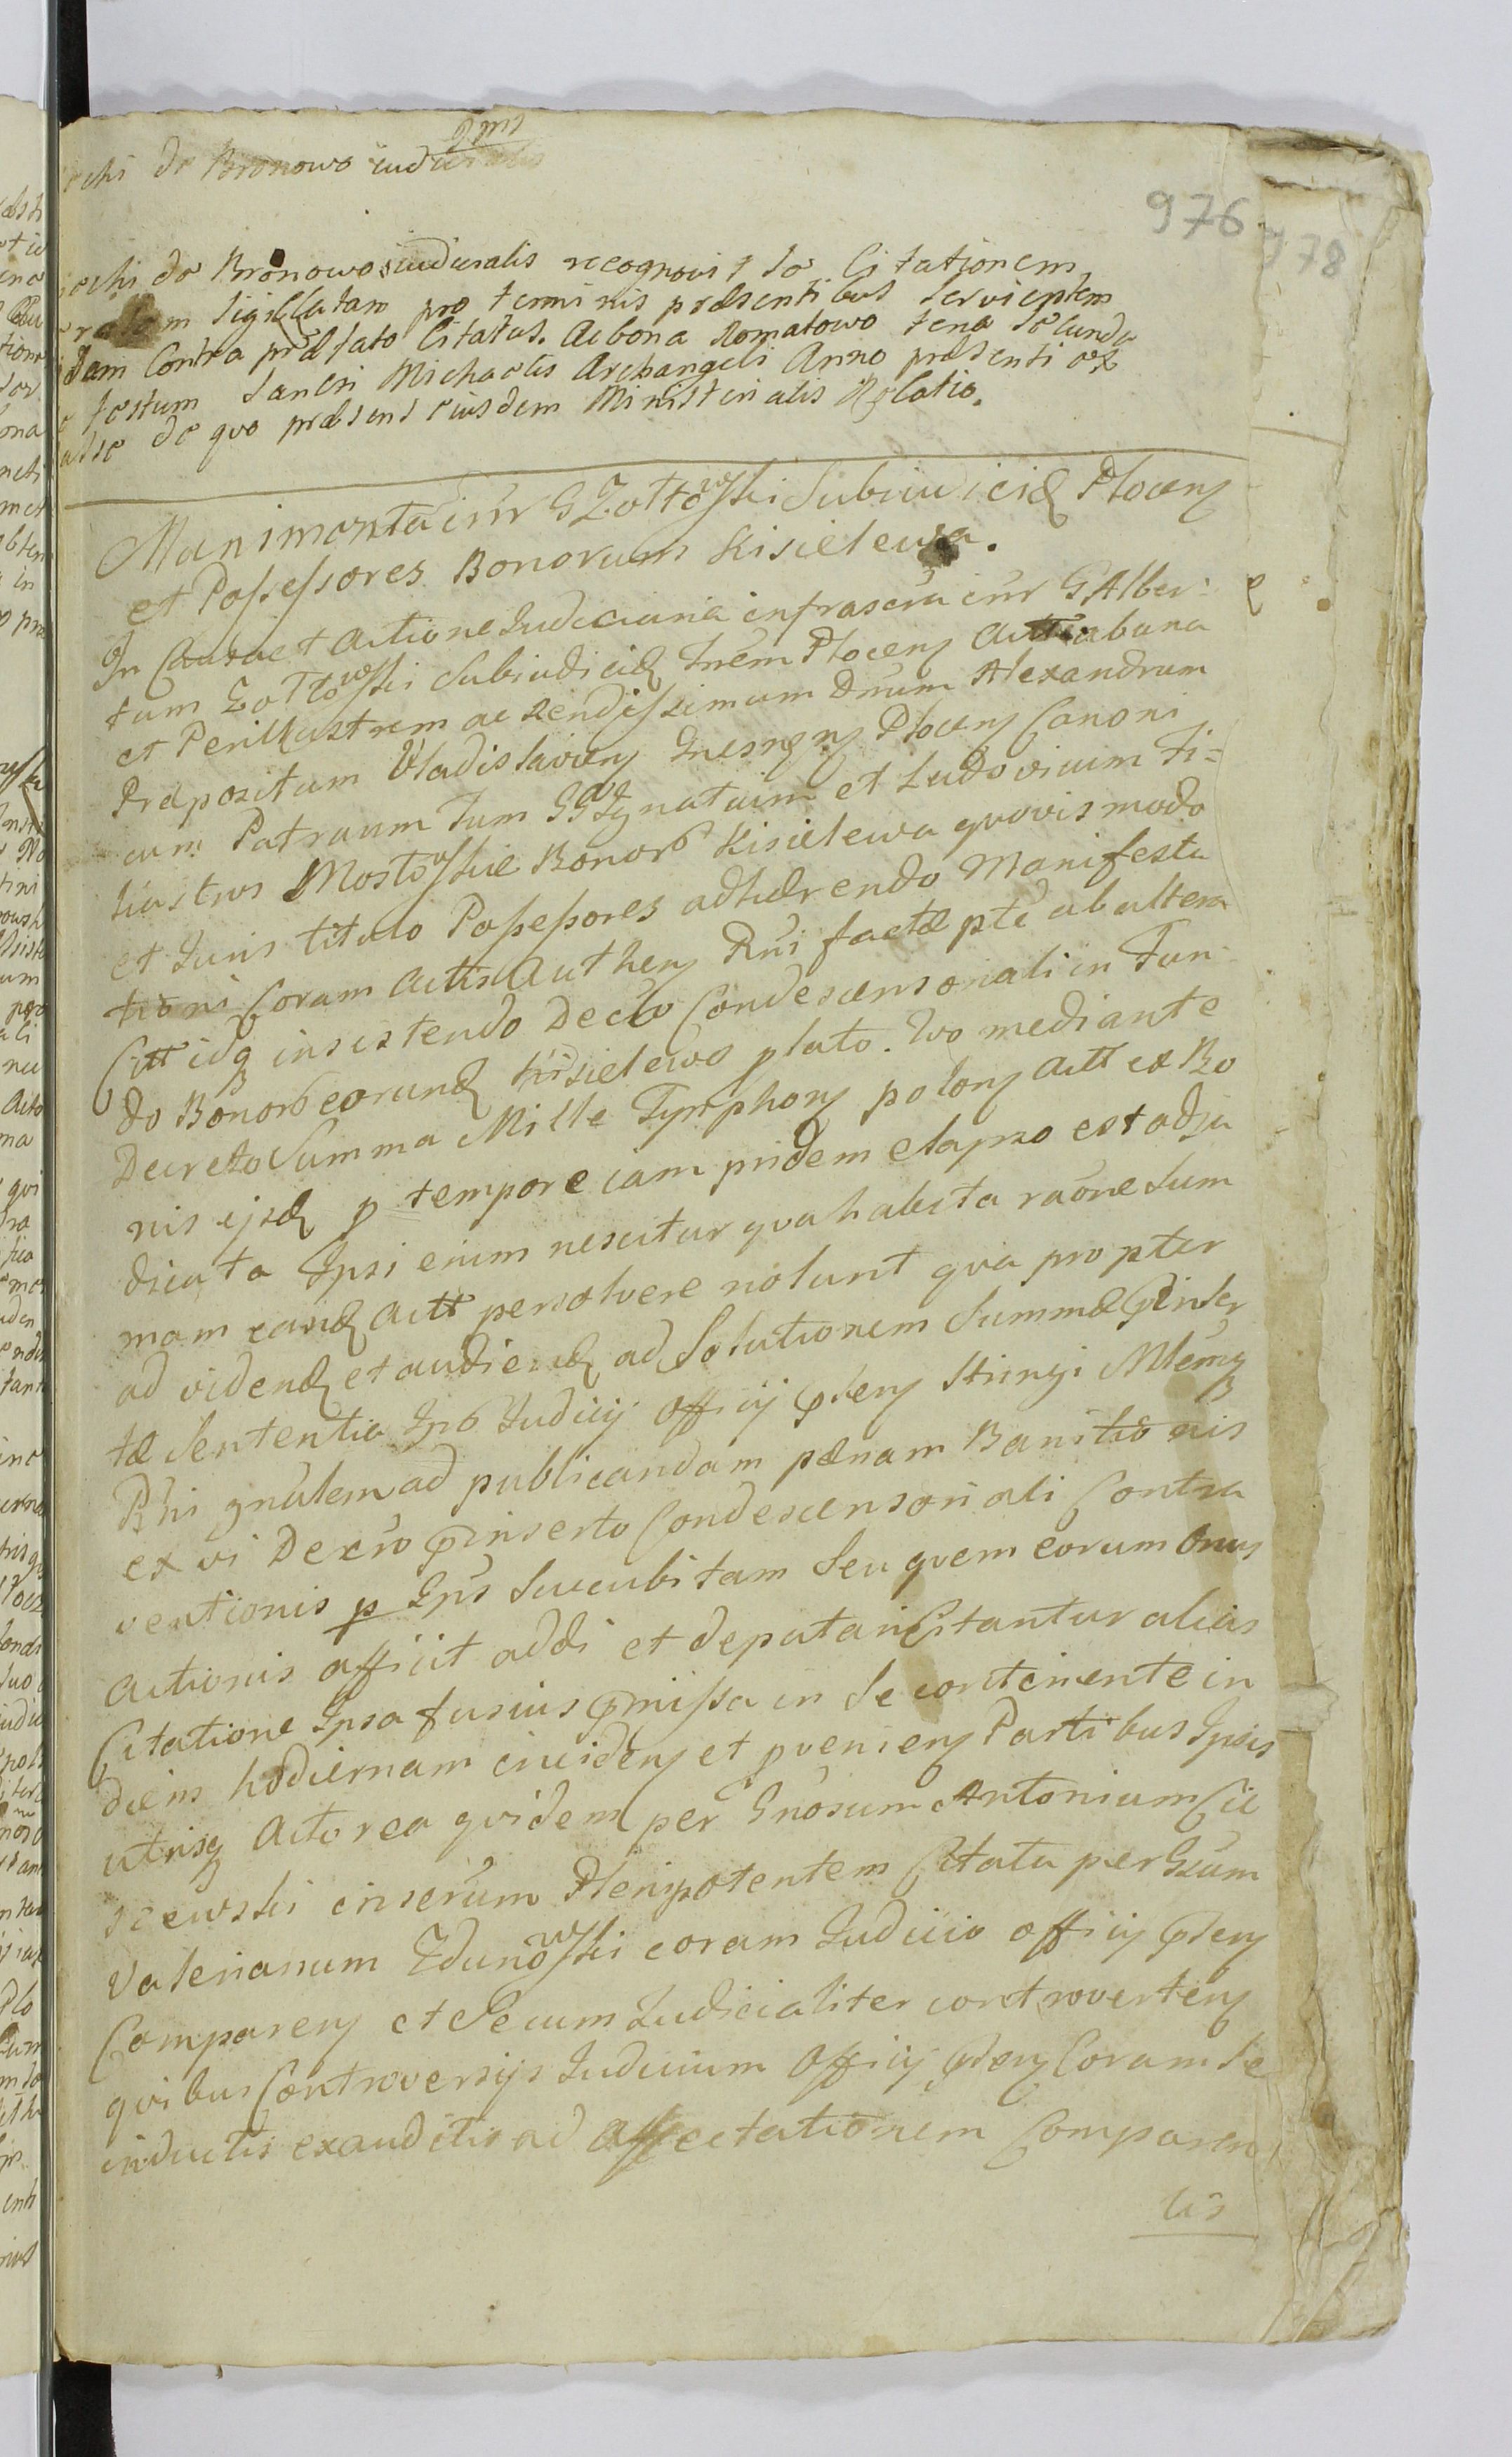 de Bronowo
976
978
de Bronowo iuduralis recognovit se Citationem
sigillatam pro terminis præsentibus servientem
Contra prætato Citatos. Ac bona Romatowo
festum Sancti Michaelis Archangeli Anno præsenti ex
de quo præsens eiusdem Ministerialis Relatio.
int̃r G Zoltowski Subiudicē Plocen̄
et Possessores Bonorum Kisielewa.
In Causa et Actione Judiciaria infrascrã int̃r G Alber:
tum Zoltowski Subiudicē Plocen̄
et Perillustrem ac Rendissimum Dnum Alexandrum
Præpositum Vladislavien̄ Plocen̄ Canoni
cum Patruum Tum GG Ignatium et Ludovicum Fi=
liastros Mostowskie Bonor̃ Kisielewa quovis modo
et Iuris titulo Possessores adhærendo Manifesta
tioni Coram Actis Authen̄ Rni factæ ptē ab altera
Citt idq insistendo Decto Condescensoriali in Fun
do Bonor̃ eorund̄ Kisielewo plato. quo mediante
Decreto Summa Mille Tymphon̄ polon̄ Actt ex Bo
nis ijsd̄ p tempore iam pridem elapso est adju
dicata Ipsi enim nescitur qua habita raõne Sum
mam eand̄ Actt persolvere nolunt qua propter
ad videnḏ et audienḏ ad Solutionem Summæ pinser
tæ Sententia Ipõ Judicij Officij pñen̄ Stringi
gnãlem ad publicandam pænam Banitionis
ex vi Decrõ pinserto Condescensoriali Contra
ventionis p Ipõs Succubitam Seu quem eorum Onus
Actionis afficit addi et deputari Citantur alias
Citatione Ipsa fusius pmissa in Se continente in
diem hodiernam inciden̄ et pvenien̄ Partibus Ipsis
utrisq Actorea quidem per Gnosum Antonium Cie
scewski inserũm Plenipotentem Citata per Gsum
Valerianum Zdunowski coram Judicio officij pñen̄
Comparen̄ et Secum Judicialiter controverten̄
quibus Controversijs Judicium Officij pñen̄ Coram Se
inductis exauditis ad Affectationem Comparen
tis